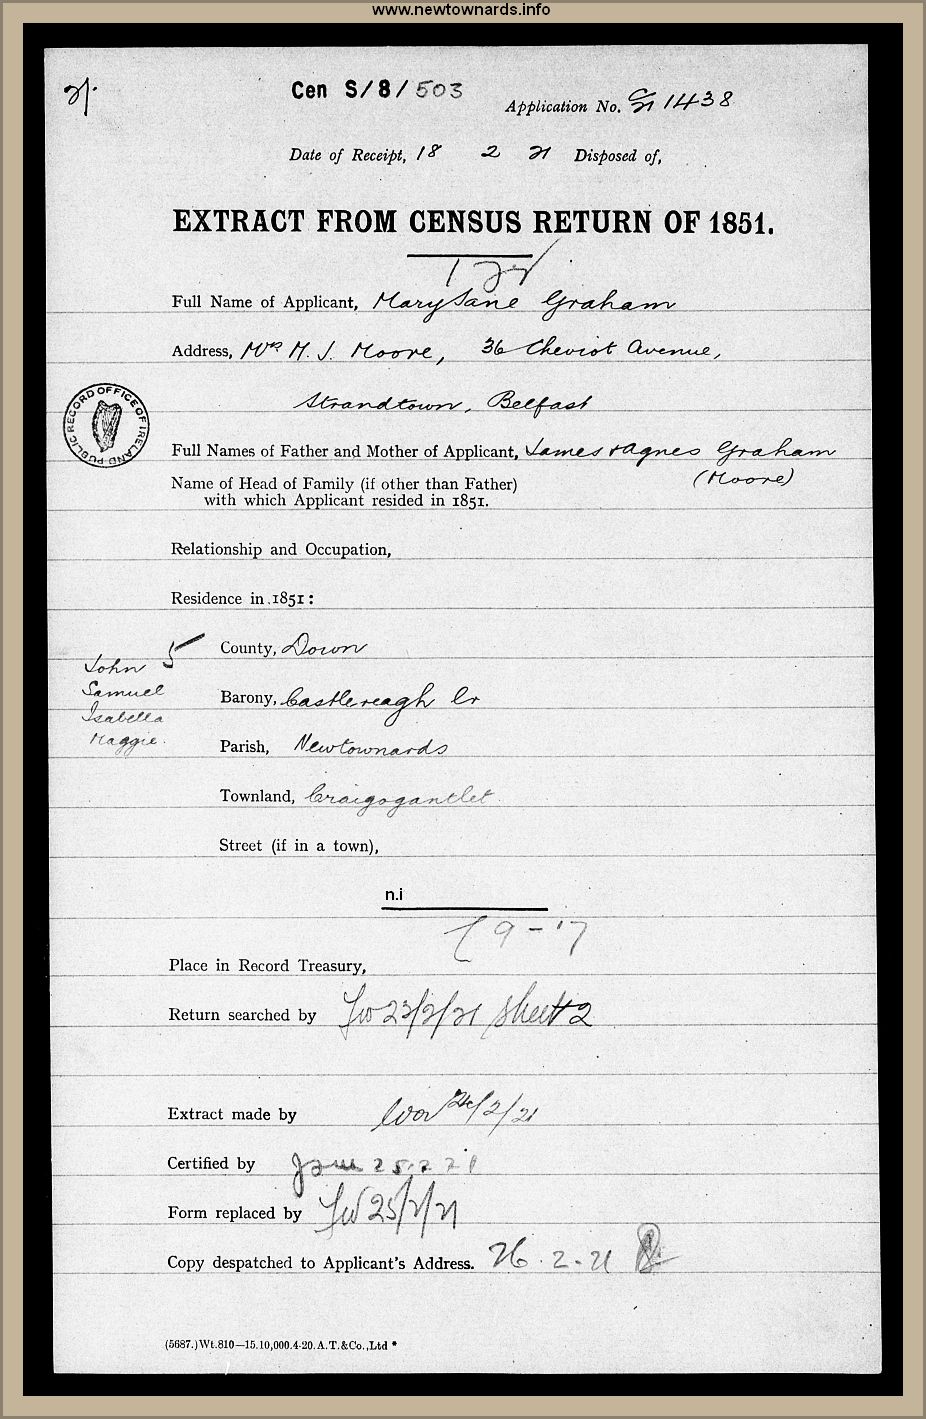 www.newtownards.info
21.
Cen S/8/503
Application No. C/21 1438
Date of Receipt, 18 2 21 Disposed of,
EXTRACT FROM CENSUS RETURN OF 1851.
Full Name of Applicant, Mary Jane Graham
Address, Mrs M. J. Moore, 36 Cheviot Avenue,
Strandtown, Belfast
PUBLIC RECORD OFFICE OF IRELAND
Full Names of Father and Mother of Applicant, James & Agnes Graham
Name of Head of Family (if other than Father) (Moore)
with which Applicant resided in 1851.
Relationship and Occupation,
Residence in 1851:
County, Down
John 5
Samuel
Isabella
Maggie.
Barony, Castlereagh Lr
Parish, Newtownards
Townland, Craigogantlet.
Street (if in a town),
n.i
9-17
Place in Record Treasury,
Return searched by 23/2/21 Sheet 2
Extract made by 24/2/21
Certified by 25.2.21
Form replaced by 25/2/21
Copy despatched to Applicant's Address. 26.2.21
(5687.)Wt.810—15.10,000.4-20.A.T.&Co.,Ltd *